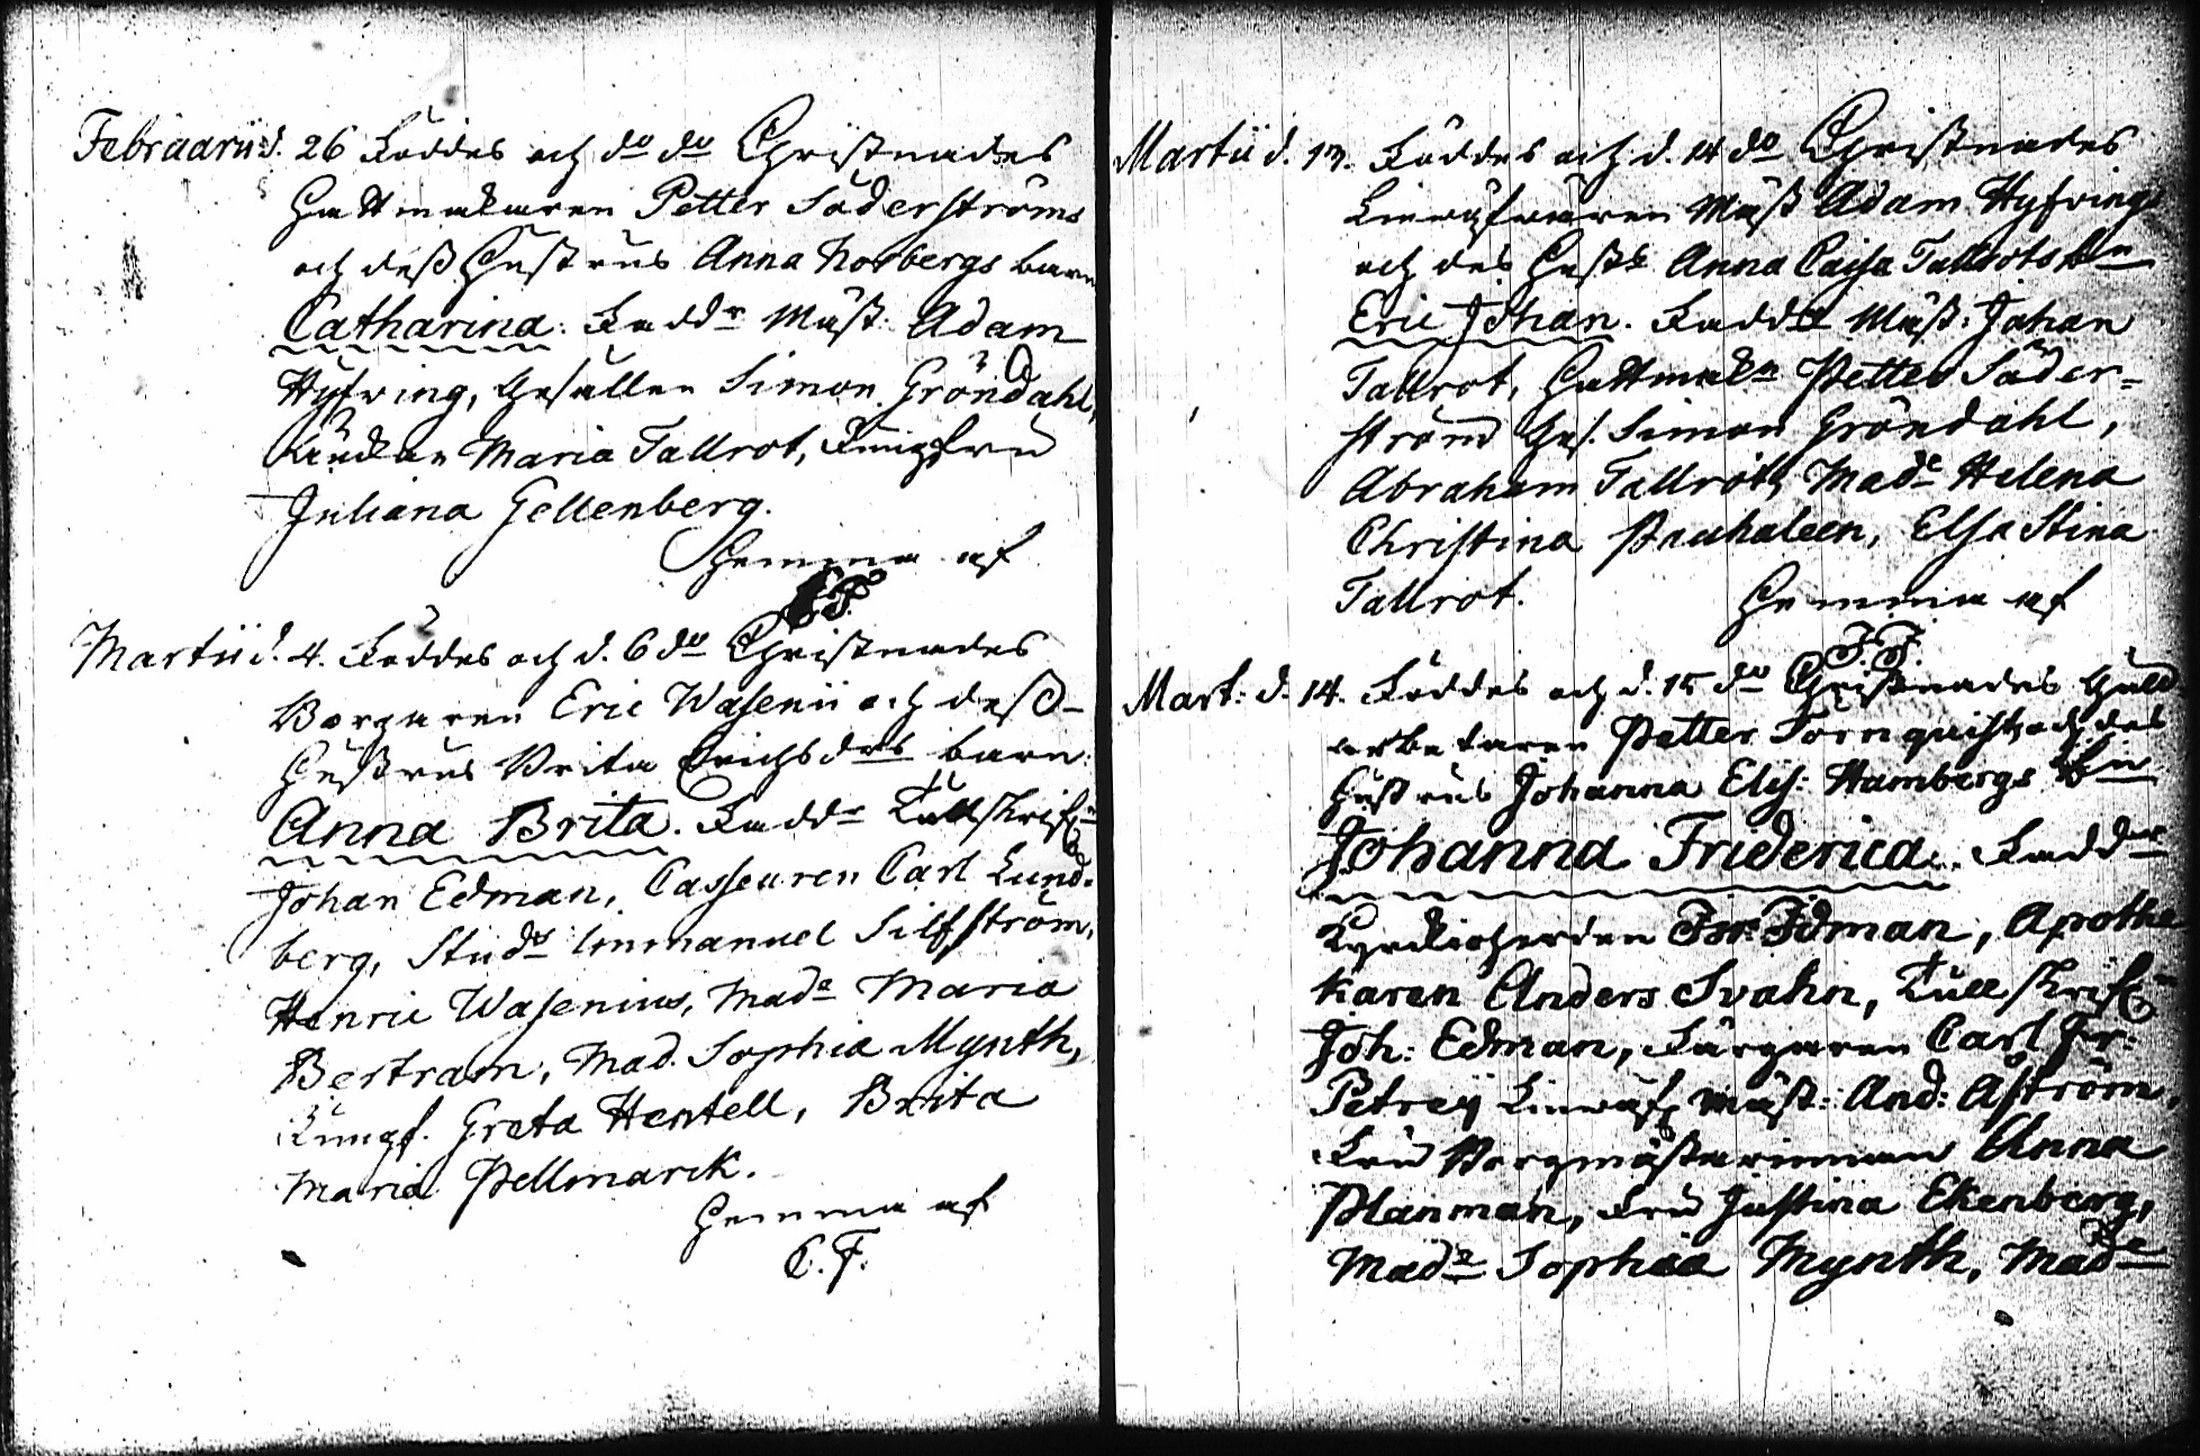 Februarii d. 26 Föddes och do do Christnades
Hattmakaren Petter Söderströms
och dess Hustrus Anna Norbergs barn
Catharina. Fadd:r Mäst: Adam
Hyfving, Gesällen Simon Gröndahl,
Änckan Maria Tallrot, Jungfru
Juliana Gellenberg.
Hemma af
Martii d. 4. Föddes och d. 6 do Christnades
Borgaren Eric Wasenii och dess
Hustrus Brita Erichsdrs barn
Anna Brita. Fadd:r Tullskrif:n
Johan Edman, Casseuren Carl Lund-
berg, Stud:s Immanuel Silfström,
Henric Wasenius, Mad:e Maria
Bertram, Mad. Sophia Mynth,
Jungf. Greta Hentell, Brita
Maria Pellmarck.
Hemma af
C. F.
Martii d. 13. Föddes och d. 14 do Christnades
Linväfvaren Mäst Adam Hyfvings
och des Hust:s Anna Caisa Tallrots Bn
Eric Johan. Fadd:r Mäst: Johan
Tallrot, Hattmak:n Petter Söder=
ström Ges. Simon Gröndahl,
Abraham Tallroth, Mad:e Helena
Christina Pauhaleen, Elsa Stina
Tallrot. Hemma af
F. F.
Mart: d. 14. Föddes och d. 15 do Christnades Guld
arbetaren Petter Törnquist och des
Hustrus Johanna Elis: Hambergs Bn
Johanna Friderica. Fadd:r
Kyrckioherden Edman, Apothe
karen Anders Svahn, Tullskrif:n
Joh: Edman, Färgaren Carl Fr:
Petrej Linväf: Mäst: And: Åström,
Fru Borgmästarinnan Anna
Planman, Fru Justina Ekenberg,
Mad:e Sophia Mynth, Mad:e